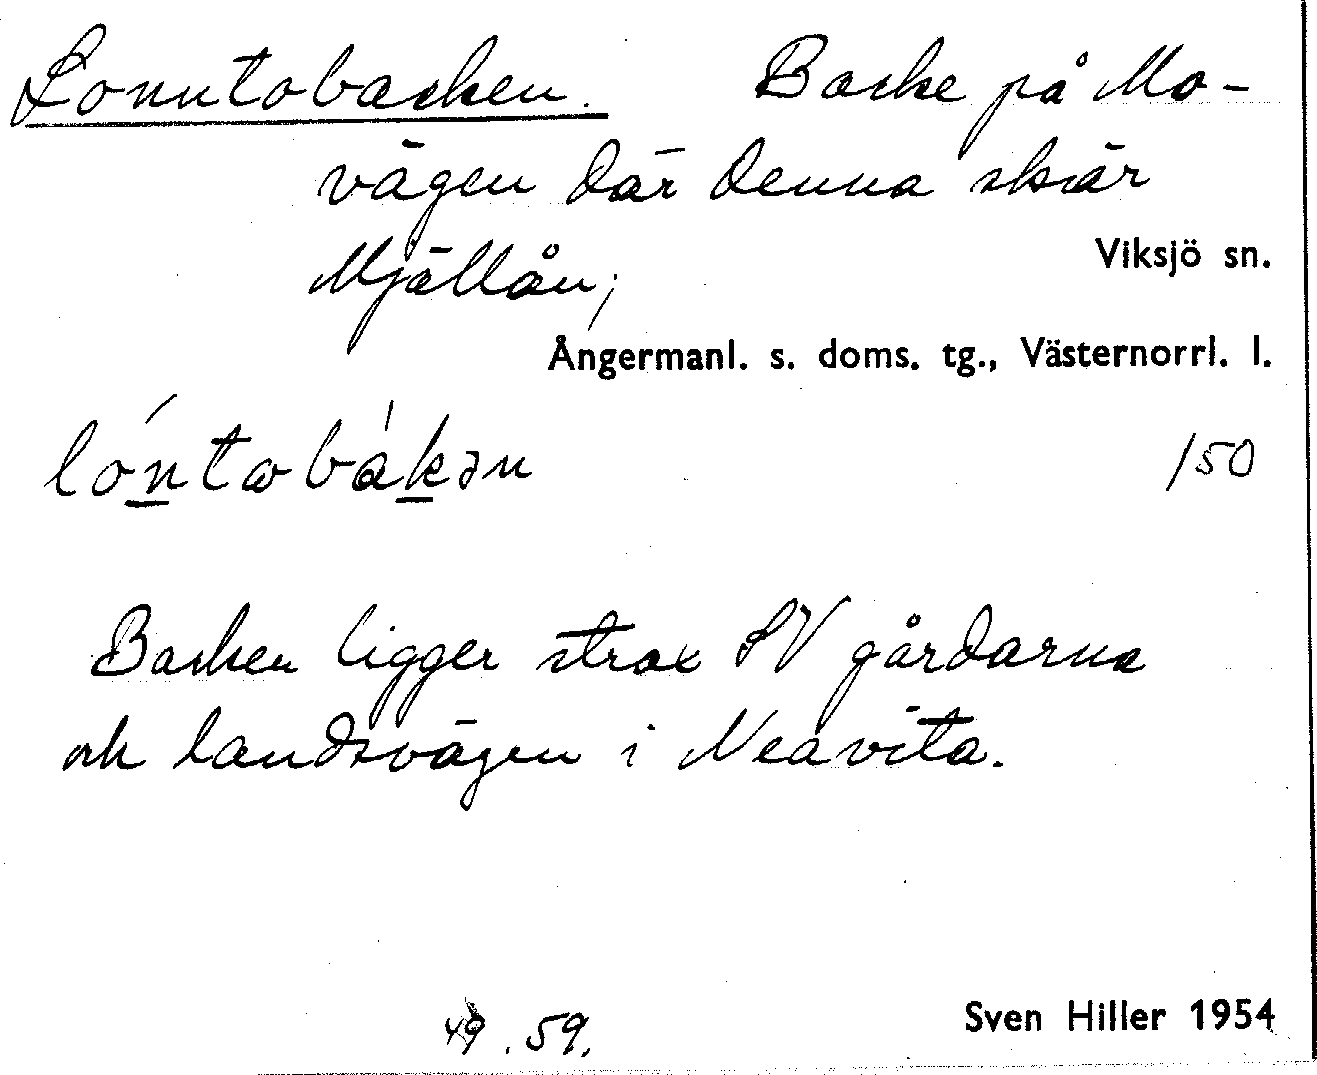 Lonntobacken. Backe på Mo-
vägen där denna skär
Viksjö sn.
Mjällån;
Ångermanl. s. doms. tg., Västernorrl. l.
lóntobákən 150
Backen ligger strax SV gårdarna
och landsvägen i Neåvita.
49.59.
Sven Hiller 1954